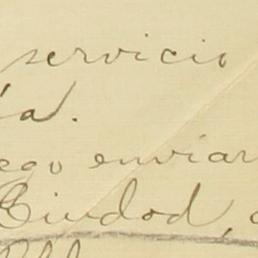 servicio
ía.
ego enviar
Ciudod,